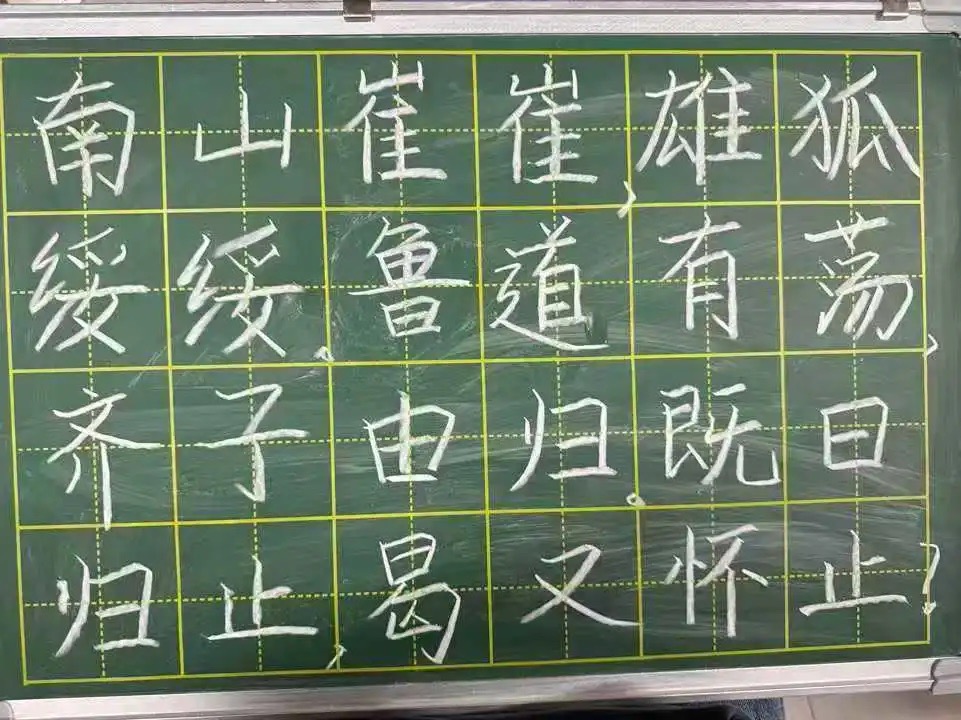 南山崔崔，雄狐
绥绥。鲁道有荡，
齐子由归。既曰
归止，曷又怀止？